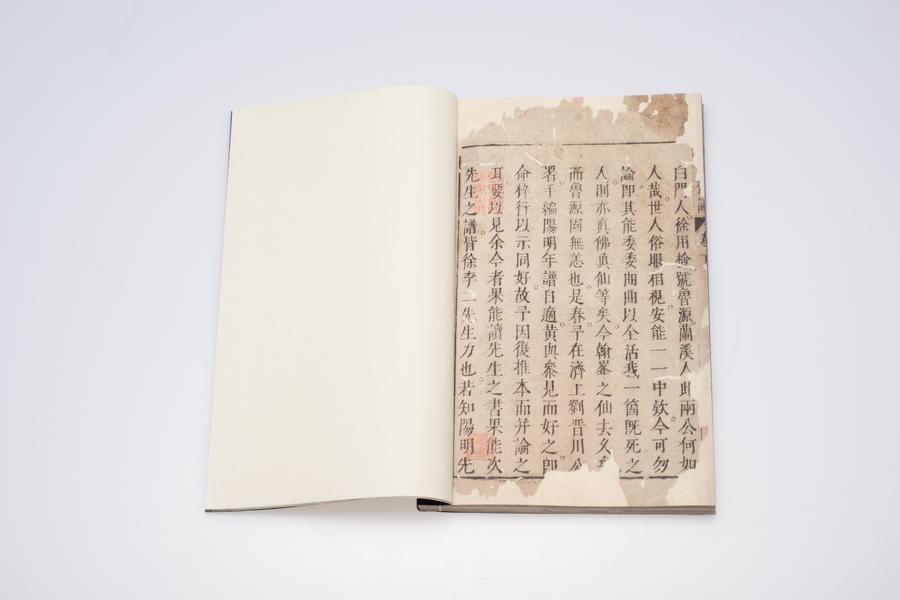 白門人徐用檢號魯源蘭溪人此兩公何如
人哉世人俗眼相視安能一一中欵今可勿
論即其能委委曲曲以全活我一箇既死之
人則亦真佛真仙等矣今翰峯之仙去久矣
而魯源固無恙也是春予在濟上劉晋川公
署手編陽明年譜自適黃與叅見而好之即
命梓行以示同好故予因復推本而并論之
耳要以見余今者果能讀先生之書果能次
先生之譜皆徐李二先生力也若知陽明先